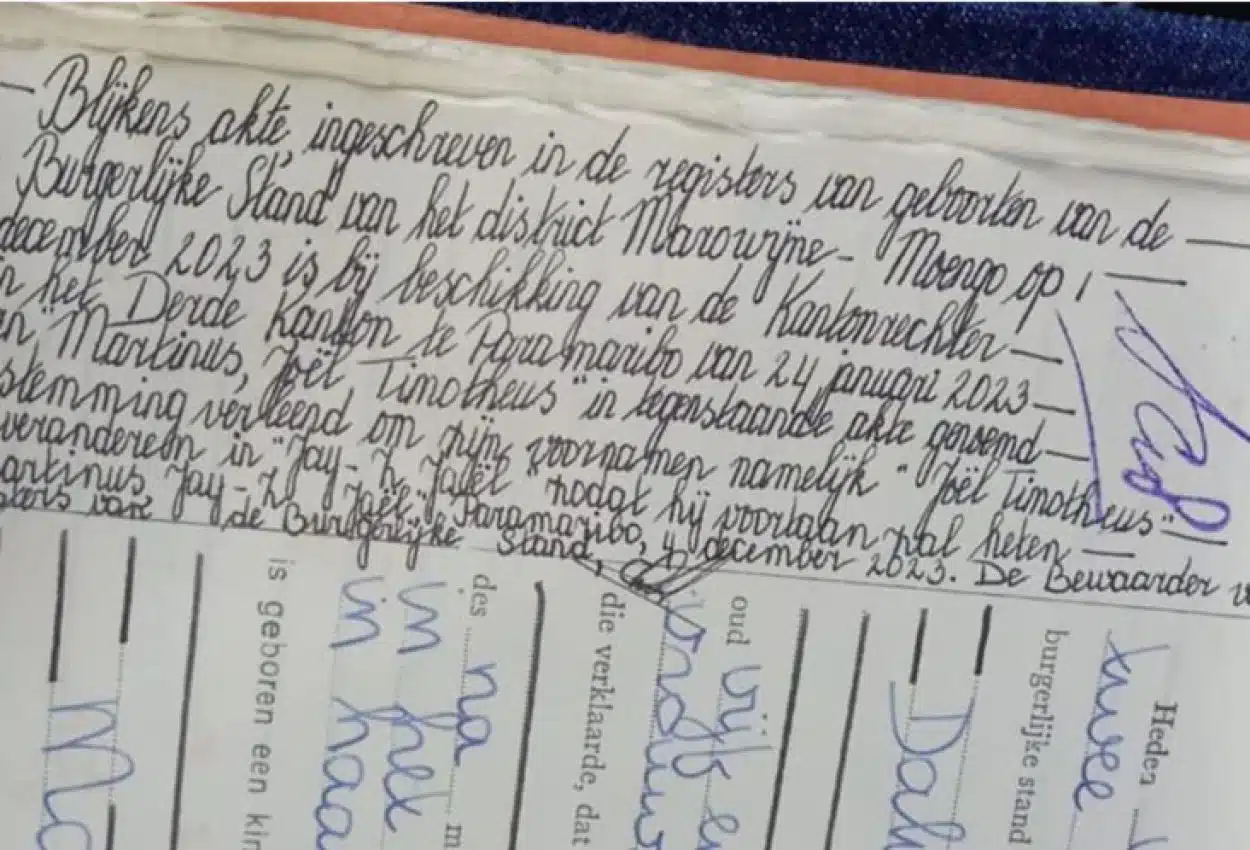 — Blijkens akte, ingeschreven in de registers van geboorten van de —
Burgerlijke Stand van het district Marowijne - Moengo op 1 —
december 2023 is bij beschikking van de Kantonrechter —
n het Derde Kanton te Paramaribo van 24 januari 2023 —
an "Martinus, Joël, Timotheus" in tegenstaande akte genoemd —
stemming verleend om zijn voornamen namelijk "Joël Timotheus" —
veranderen in "Jay-Z Jaël" zodat hij voortaan zal heten —
artinus Jay-Z Jaël". Paramaribo, 4 december 2023. De Bewaarder v
sters van de Burgerlijke Stand,
Heden
twee
burgerlijke stand
Dah
oud vijf en
die verklaarde, dat
des na m
in het
in haa
is geboren een kin